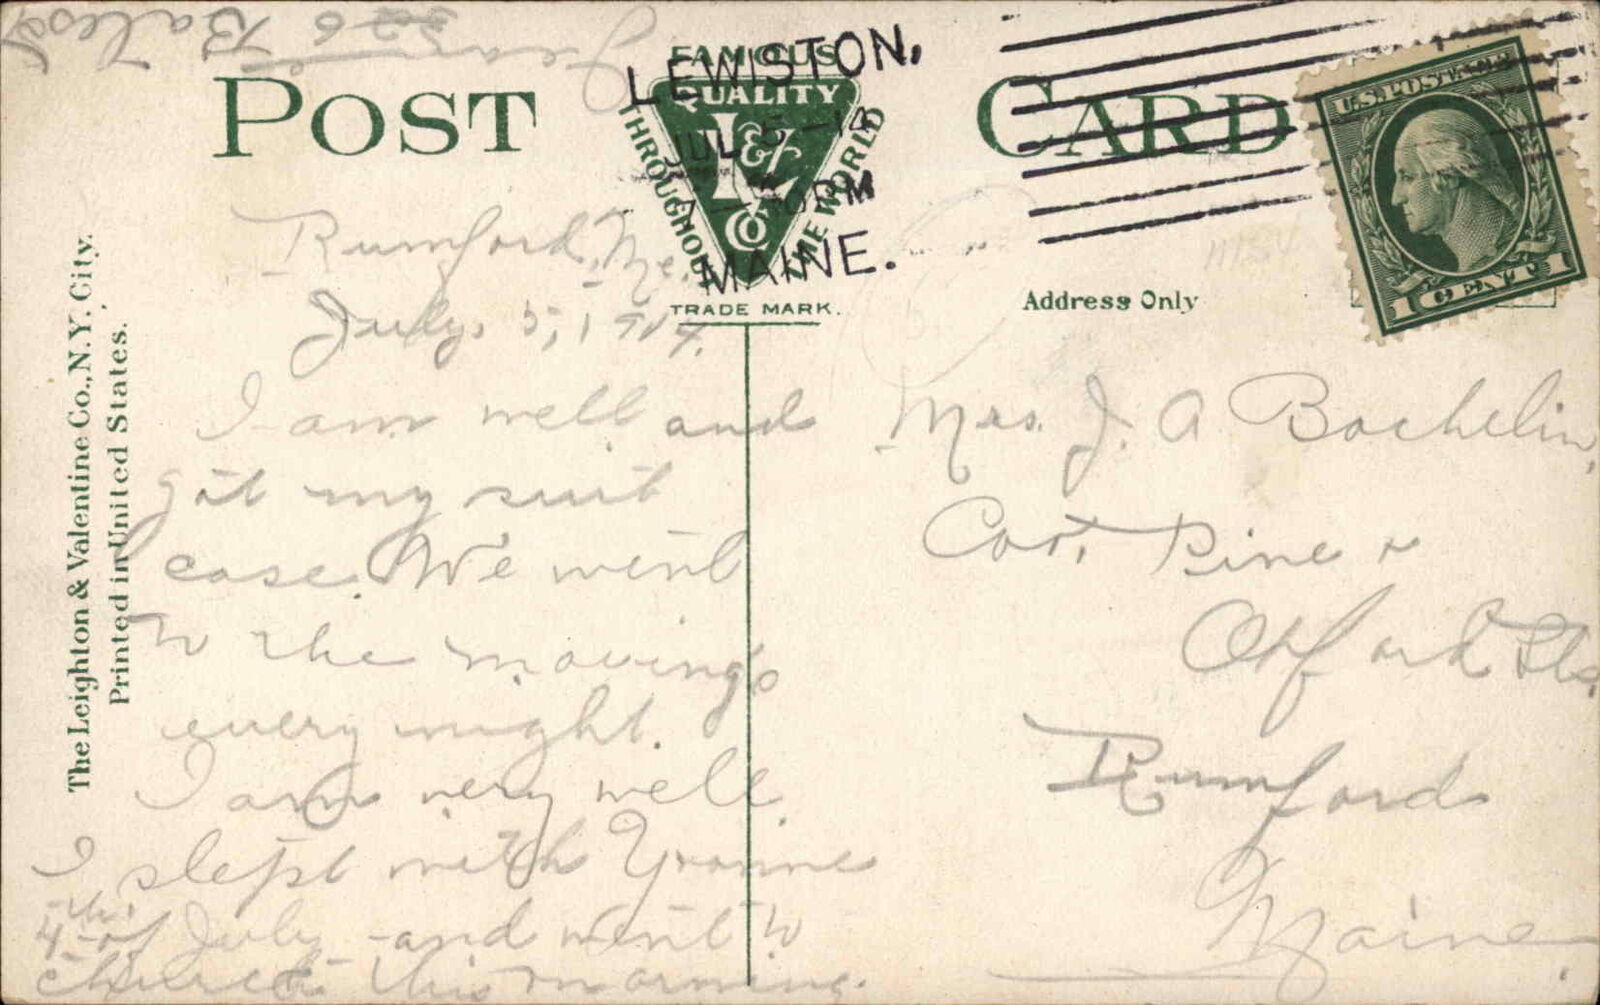 POST CARD
FAMOUS
QUALITY
THROUGHOUT THE WORLD
L&V
Co
TRADE MARK.
LEWISTON,
JUL 5
PM
MAINE.
U.S. POSTAGE
1 CENT 1
Address Only
The Leighton & Valentine Co., N.Y. City.
Printed in United States.
Rumford, Me.
July. 5, 1914.
I am well and
got my suit
case. We went
to the moving's
every night.
I am very well.
I slept with Yvonne
4th. of July and went to
church this morning.
Mrs. J. A Bachelin,
Cor. Pine &
Oxford Sts.
Rumford
Maine.